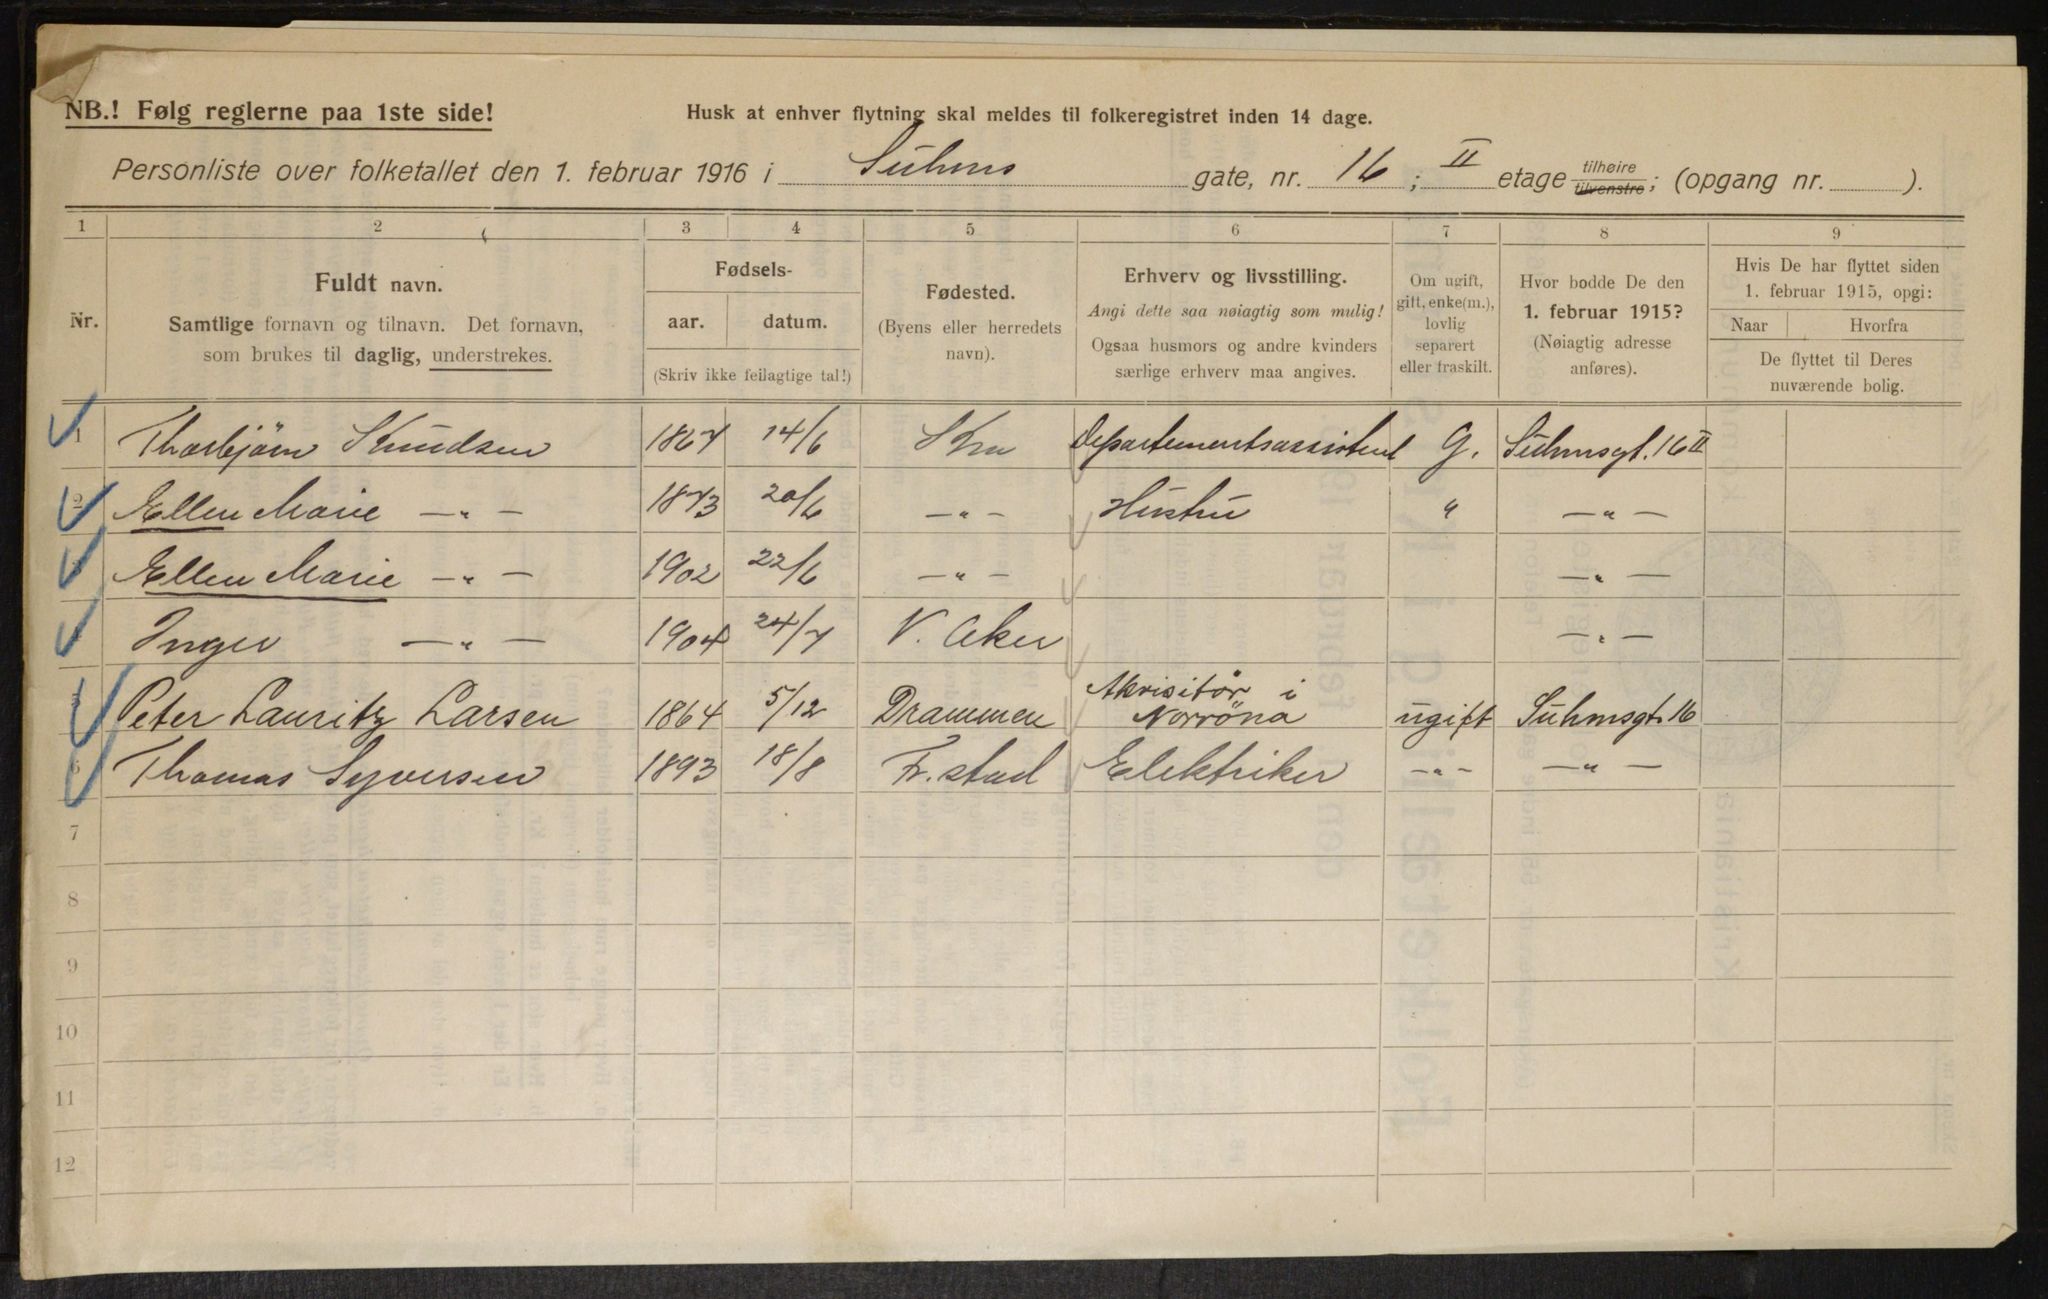 NB.! Følg reglerne paa 1ste side!
Husk at enhver flytning skal meldes til folkeregistret inden 14 dage.
Personliste over folketallet den 1. februar 1916 i Suhms gate, nr. 16; II etage tilhøire tilvenstre; (opgang nr. ).
1 2 3 4 5 6 7 8 9
Nr.
Fuldt navn.
Samtlige fornavn og tilnavn. Det fornavn,
som brukes til daglig, understrekes.
Fødsels-
aar. datum.
(Skriv ikke feilagtige tal!)
Fødested.
(Byens eller herredets
navn).
Erhverv og livsstilling.
Angi dette saa nøiagtig som mulig!
Ogsaa husmors og andre kvinders
særlige erhverv maa angives.
Om ugift,
gift, enke(m.),
lovlig
separert
eller fraskilt.
Hvor bodde De den
1. februar 1915?
(Nøiagtig adresse
anføres).
Hvis De har flyttet siden
1. februar 1915, opgi:
Naar Hvorfra
De flyttet til Deres
nuværende bolig.
1 Thorbjörn Knudsen 1867 14/6 Kra Departementsassistent G. Suhmsgt. 16 II
2 Ellen Marie —"— 1873 20/6 —"— Hustru " —"—
3 Ellen Marie —"— 1902 22/6 —"— —"—
4 Inger —"— 1904 24/7 V. Aker —"—
5 Peter Lauritz Larsen 1864 5/12 Drammen Akvisitør i Norröna ugift Suhmsgt. 16
6 Thomas Syversen 1893 18/8 Fr.stad Elektriker —"— —"—
7
8
9
10
11
12